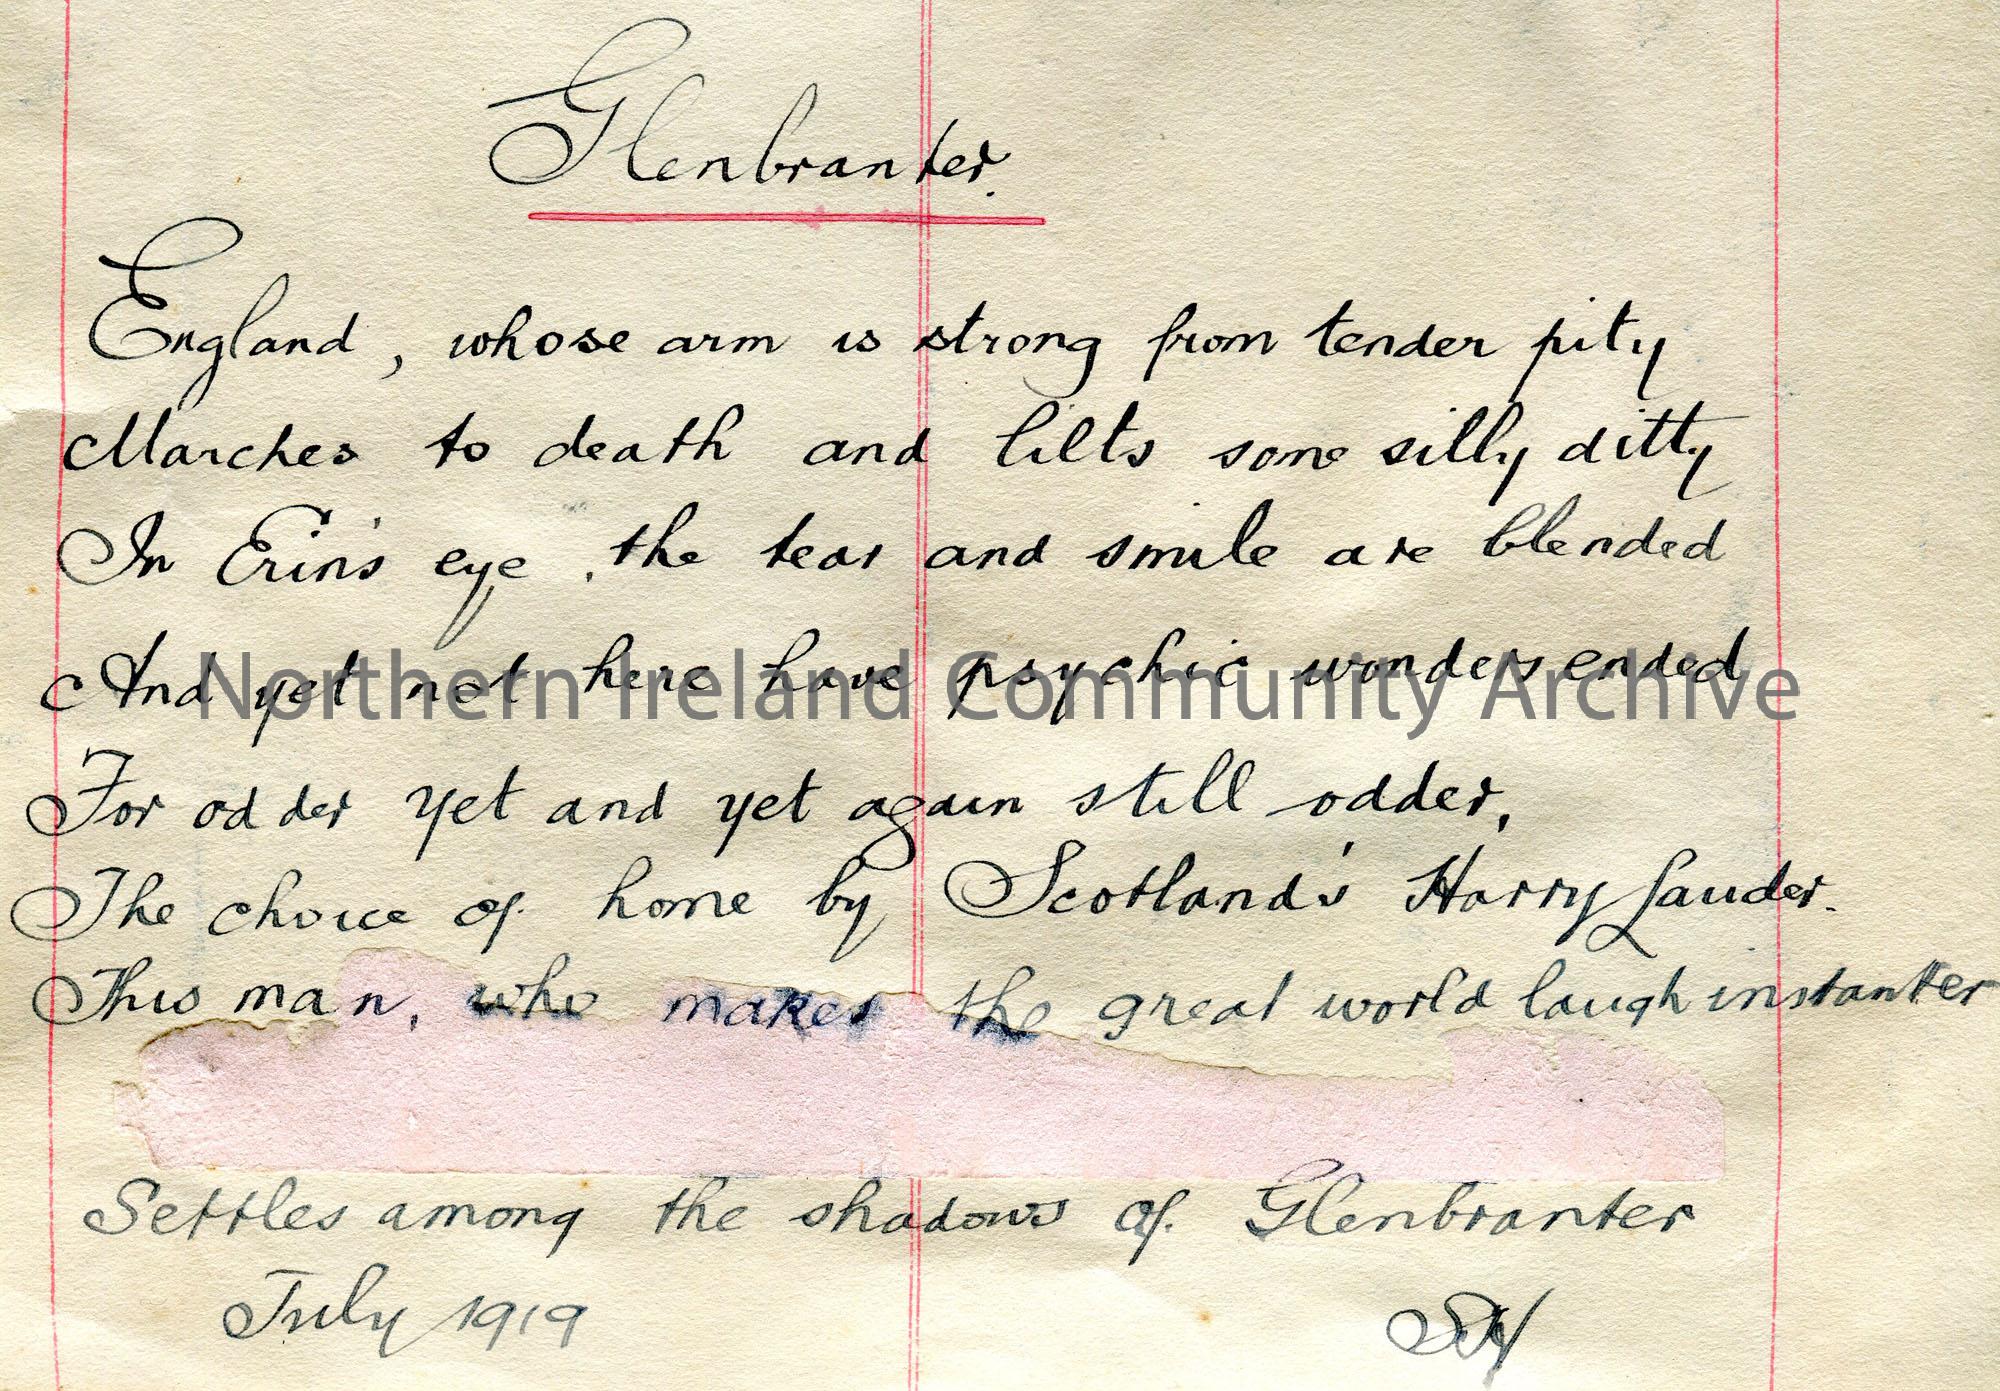 Glenbranter.
England, whose arm is strong from tender pity
Marches to death and lilts some silly ditty
In Erin's eye, the tear and smile are blended
And yet not here have psychic wonders ended
Northern Ireland Community Archive
For odder yet and yet again still odder,
The choice of home by Scotland's Harry Lauder.
This man, who makes the great world laugh instanter
Settles among the shadows of Glenbranter
July 1919